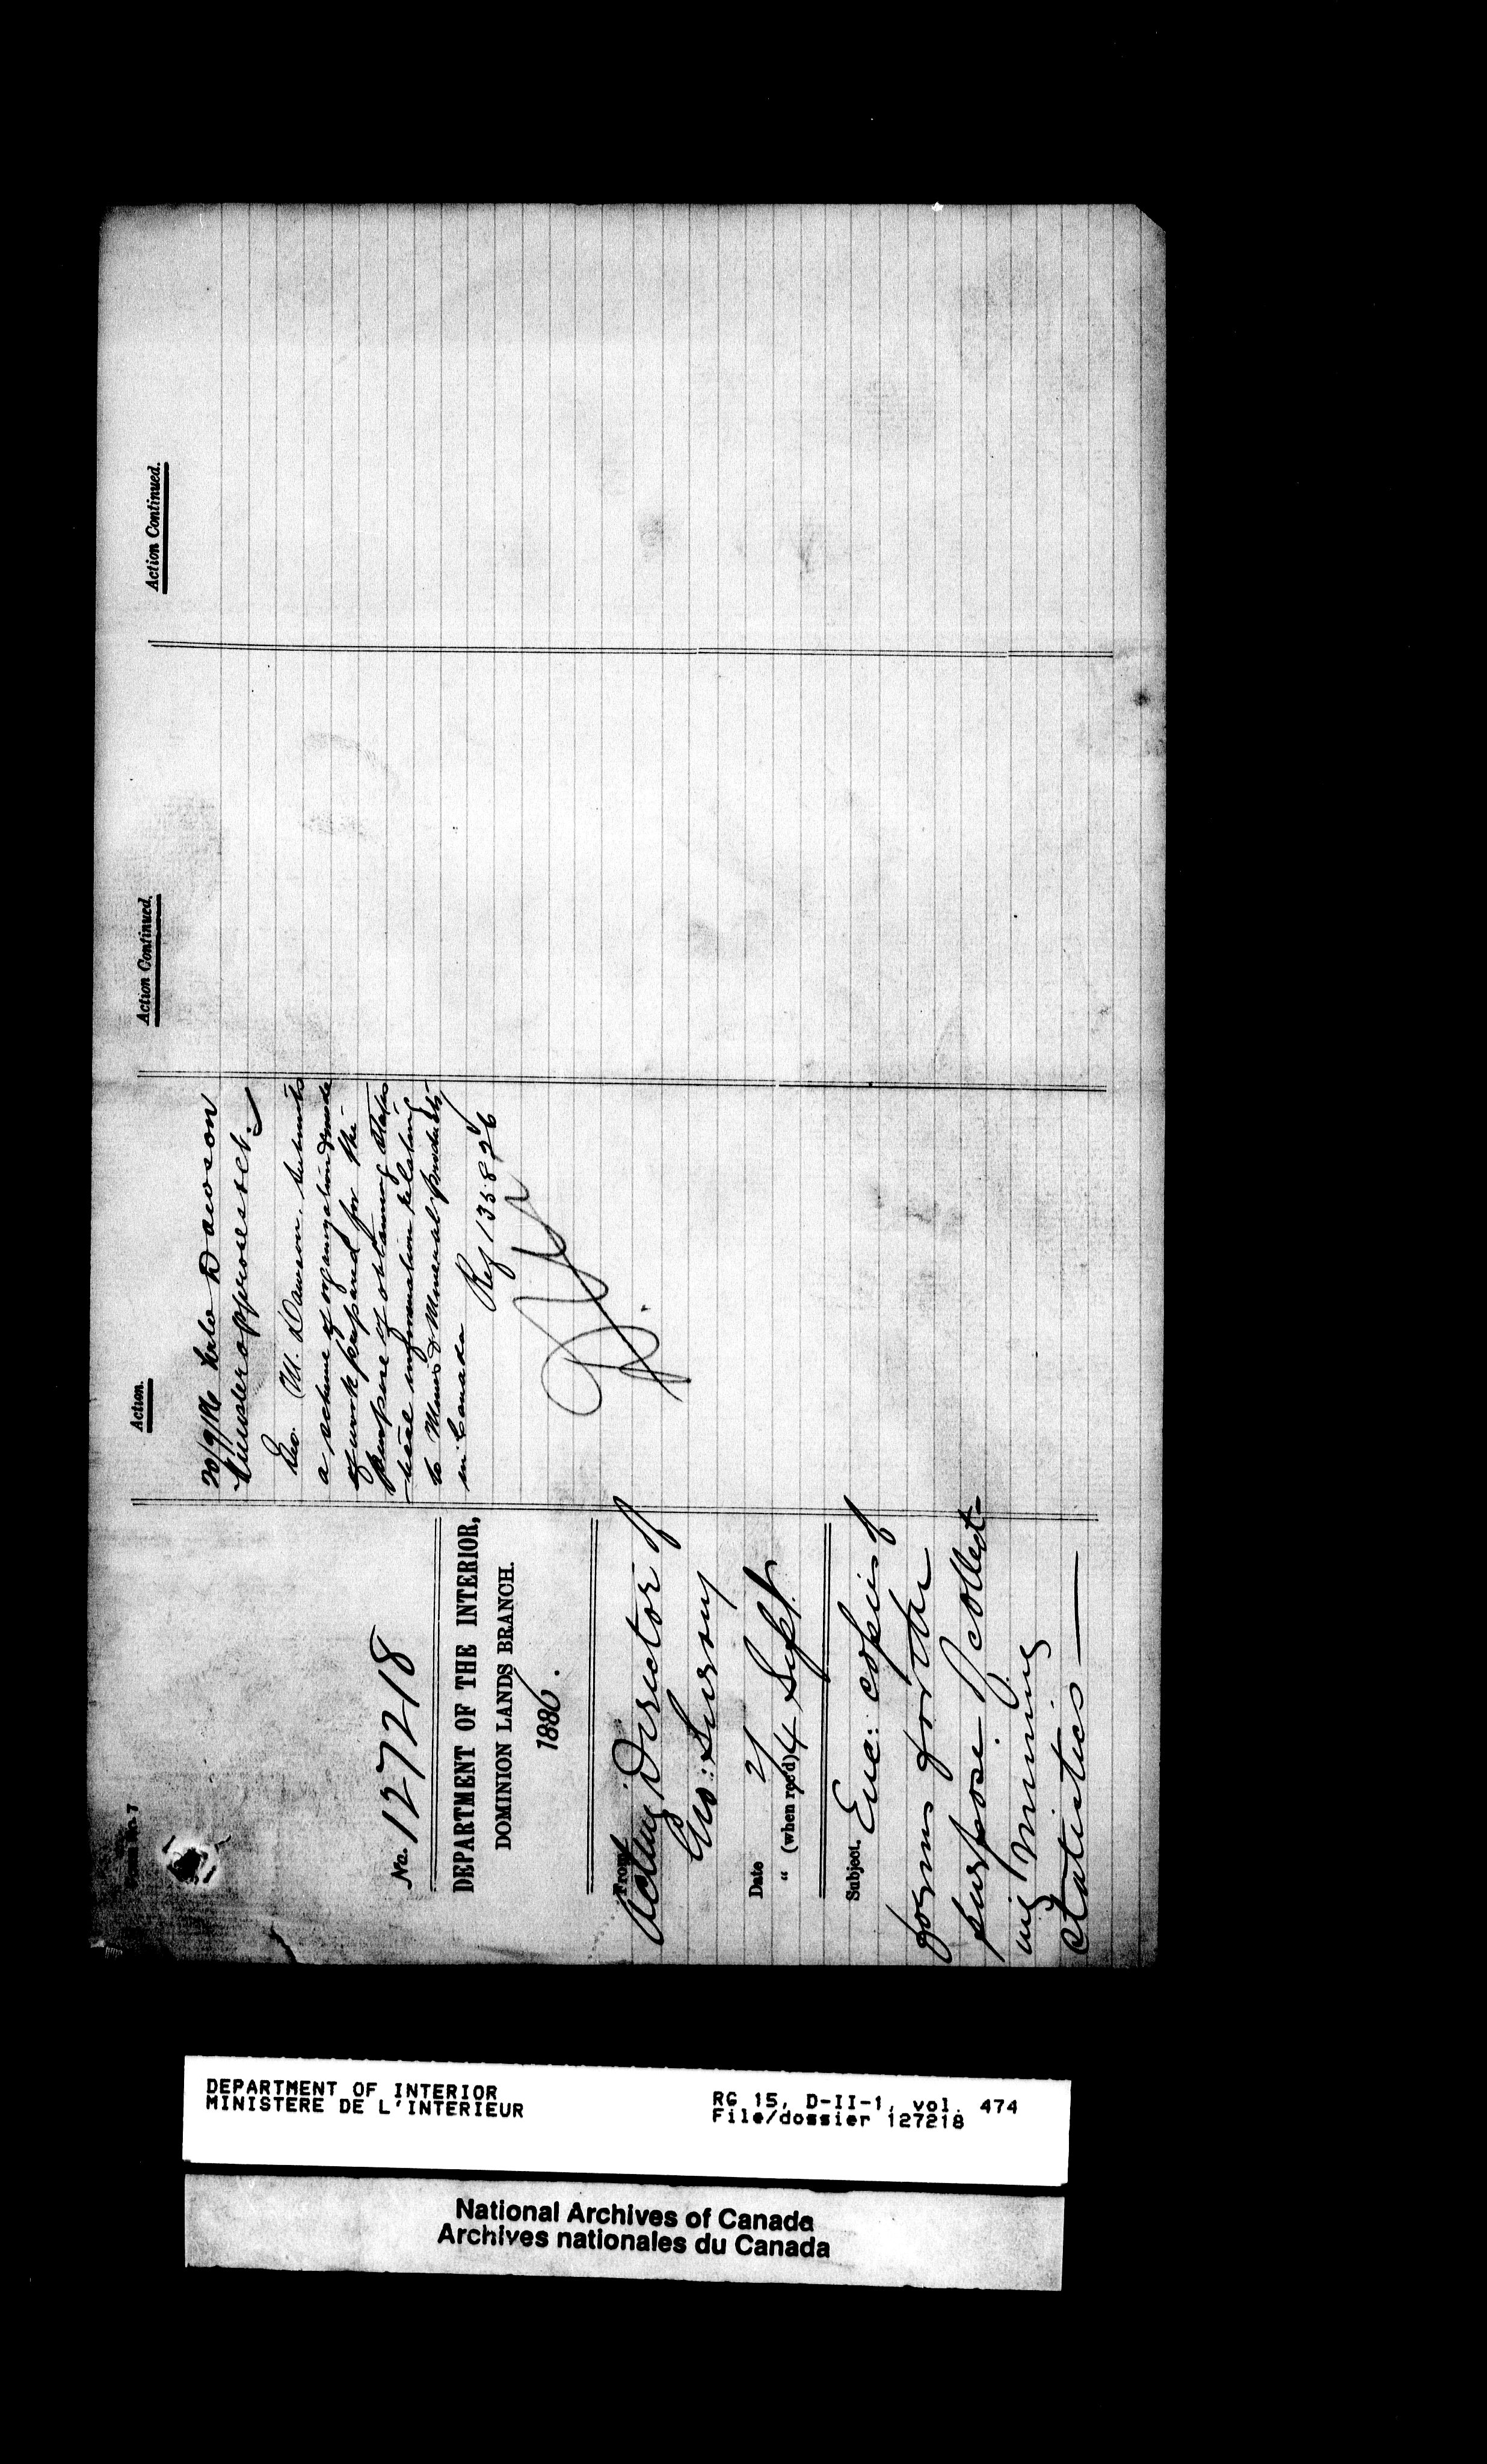 No. 127218
DEPARTMENT OF THE INTERIOR,
DOMINION LANDS BRANCH.
1886.
From
Acting Director of
Geo: Survey
Date 2/
" (when recd) 4 Sept.
Subject. Enc: copies of
forms for the
purpose of collect-
ing Mining
Statistics
Action.
20/9/86 to Dawson
Minister approves &c.
Geo. M. Dawson, submits
a scheme of organization & mode
of work prepared for the
purpose of obtaining statis-
tical information relating
to Mines & Mineral products
in Canada Ref 135826
Action Continued.
Action Continued.
DEPARTMENT OF INTERIOR
MINISTERE DE L'INTERIEUR
RG 15, D-II-1, vol. 474
File/dossier 127218
National Archives of Canada
Archives nationales du Canada